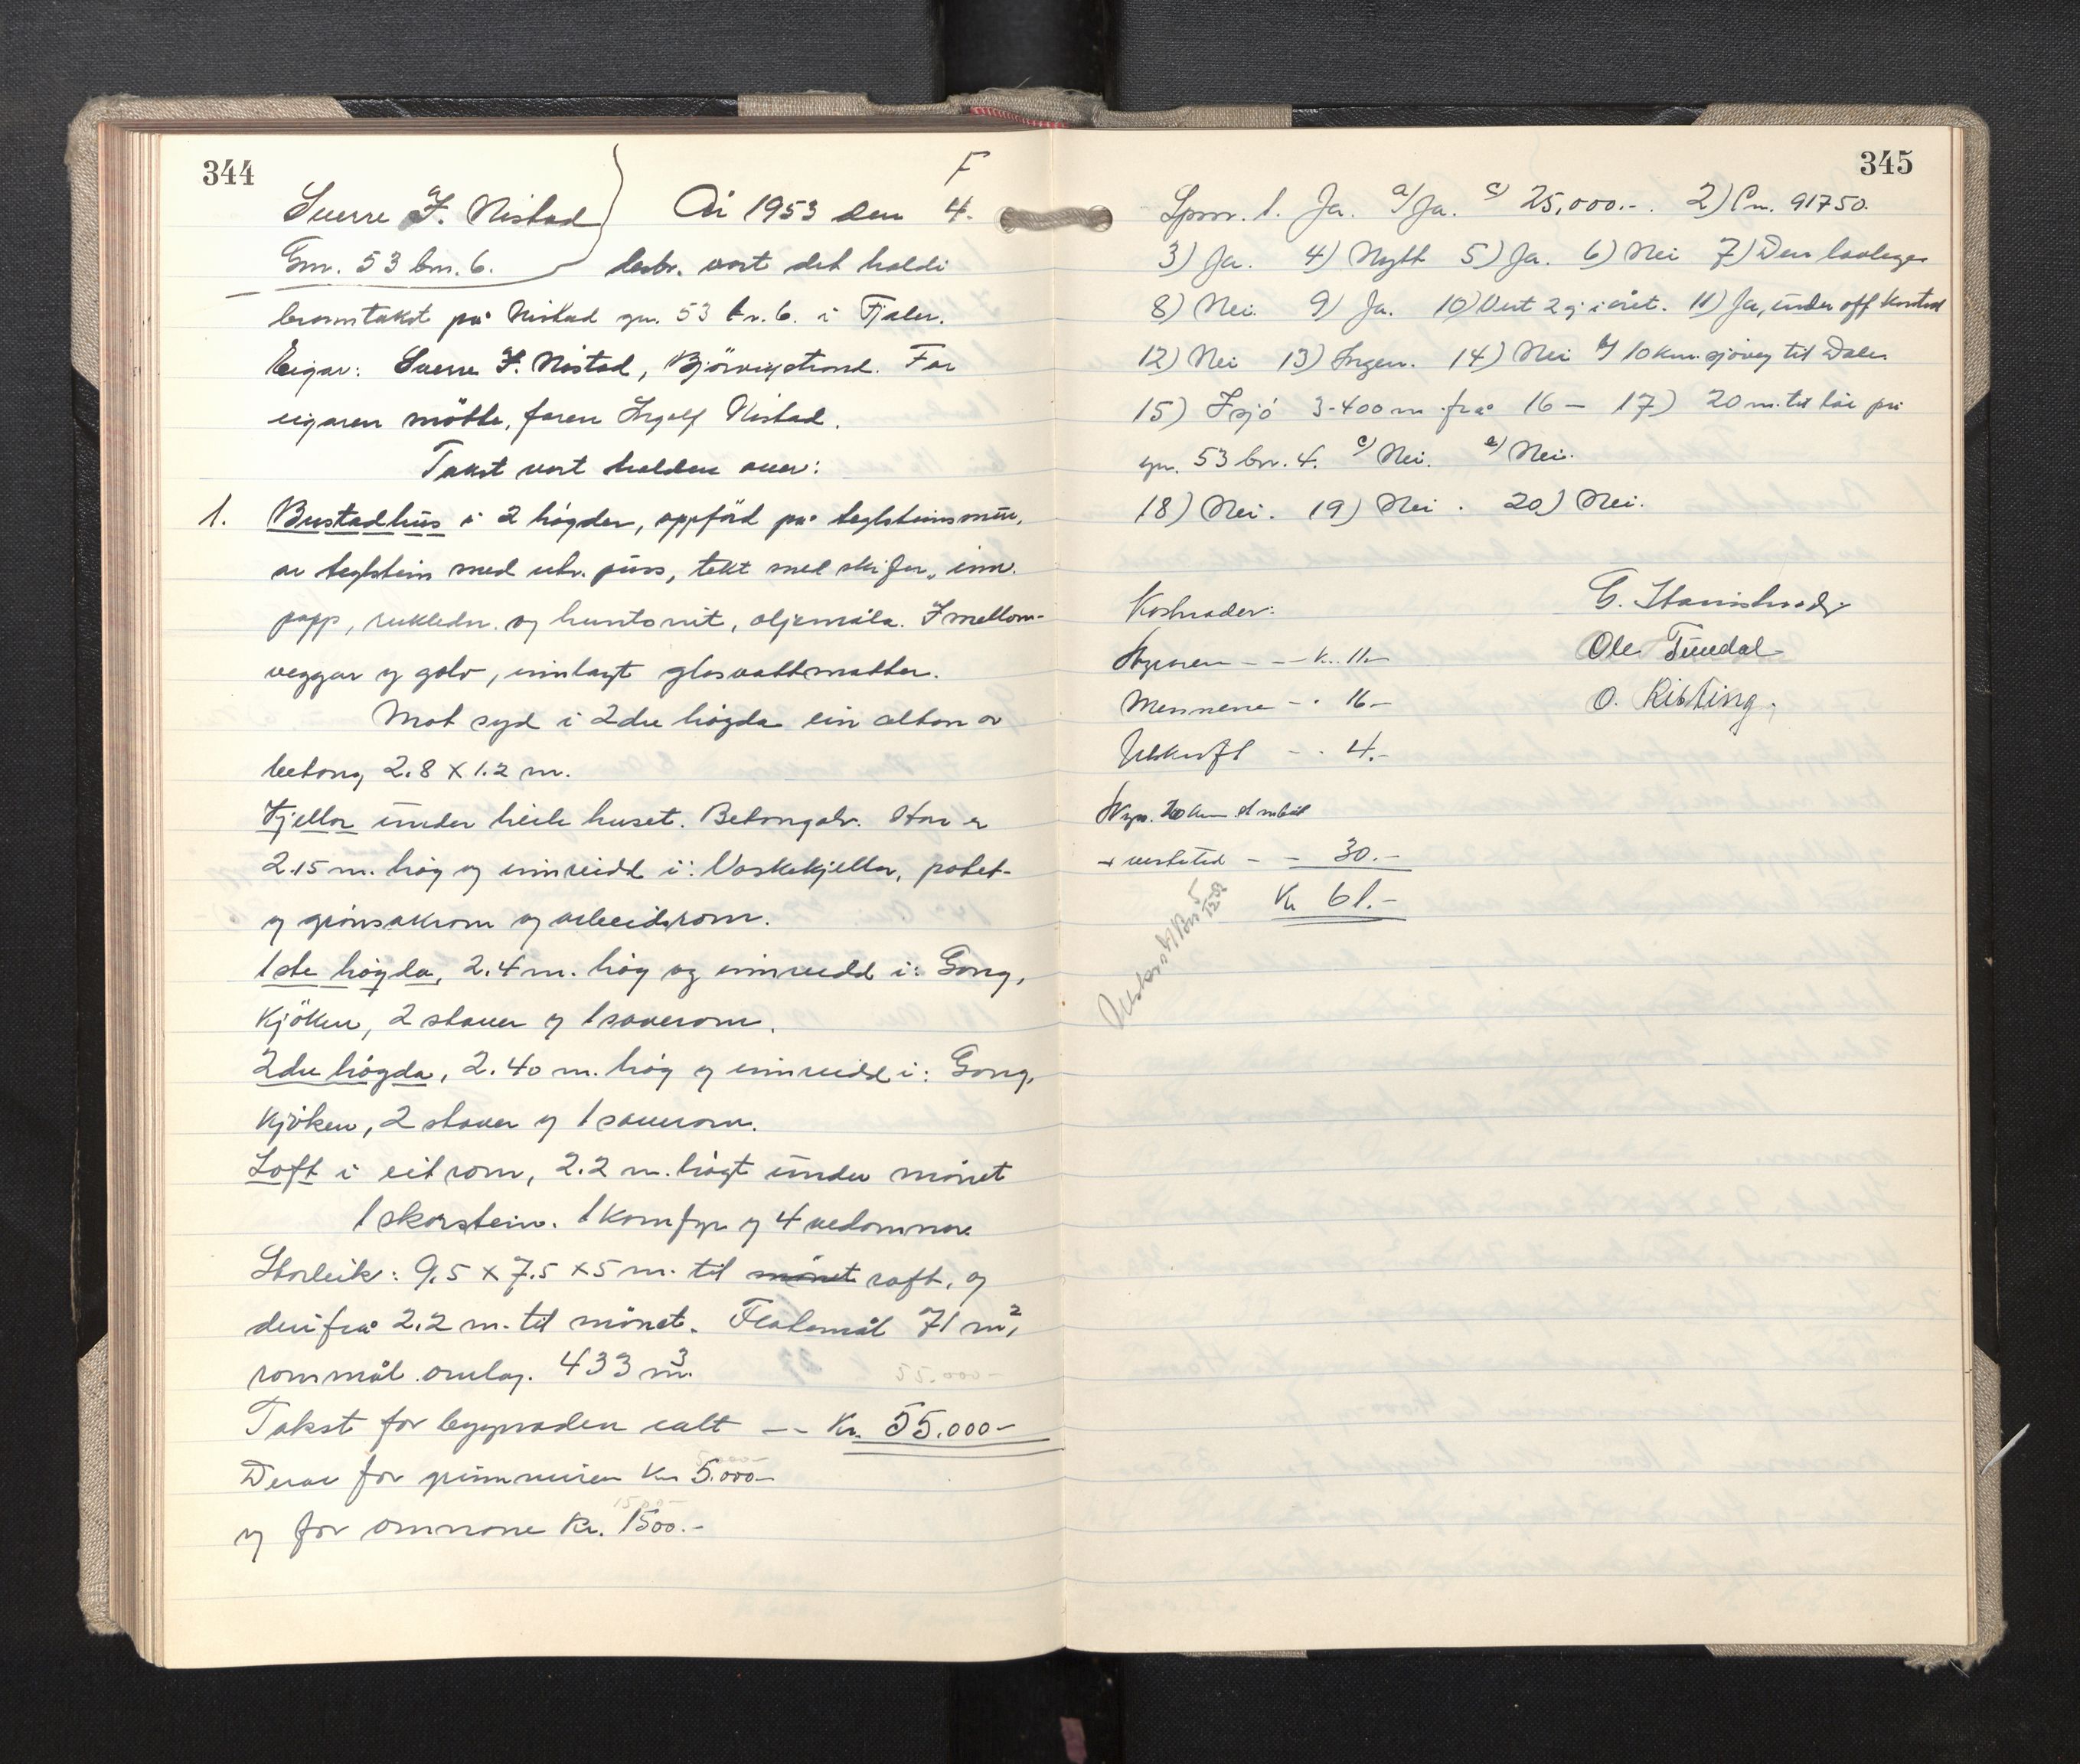 344
F
Sverre I. Nistad } År 1953 den 4.
Gnr. 53 bnr. 6. desbr. vart det haldi
branntakst på Nistad gnr. 53 br. 6. i Fjaler.
Eigar: Sverre I. Nistad, Bjørvigstrand. For
eigaren møtte, faren Ingolf Nistad.
Takst vart halden over:
1. Bustadhus i 2 høgder, oppförd på teglsteinsmur,
av teglstein med utv. puss, tekt med skifer, innv.
papp, rukledn. og huntonit, oljemåla. I mellom-
veggar og golv, innlagt glasvattmatter.
Mot syd i 2dre högda ein altan av
betong 2.8 x 1.2 m.
Kjellar under heile huset. Betonggolv. Han er
2.15 m. høg og innreidd i: Vaskekjellar, potet-
og grønsakrom og arbeidsrom.
1ste högda, 2.4 m. høg og innreidd i: Gong,
kjöken, 2 stover og 1 soverom.
2dre högda, 2.40 m. høg og innreidd i: Gong,
kjöken, 2 stover og 1 soverom.
Loft i eit rom, 2.2 m. høgt under mönet
1 skorstein. 1 komfyr og 4 vedomnar.
Storleik: 9.5 x 7.5 x 5 m. til mönet raft, og
derifrå 2.2 m. til mönet. Flatemål 71 m²,
rommål omlag. 433 m³.
Takst for byggnaden ialt -- Kr. 55.000-
Derav for grunnmuren Kr 5.000-
og for omnane Kr. 1500.-
345
Spm. 1. Ja. a) Ja. c) 25,000.-. 2) Pn. 91750.
3) Ja. 4) Nytt 5) Ja. 6) Nei 7) Den lovlege
8) Nei. 9) Ja. 10) Vert 2 g i året. 11) Ja, under off kontrol
12) Nei 13) Ingen. 14) Nei b) 10 km. sjöveg til Dale.
15) I sjö 3-400 m frå 16 — 17) 20 m. til løe på
gnr. 53 bnr. 4. c) Nei. e) Nei.
18) Nei. 19) Nei. 20) Nei.
Kostnader:
Styraren - - - k. 11.-
Mennene - . 16.-
Utskrift - . 4.-
Skyss. km
- - 30.-
Kr 61.-
Ole Tundal
O. Risting.